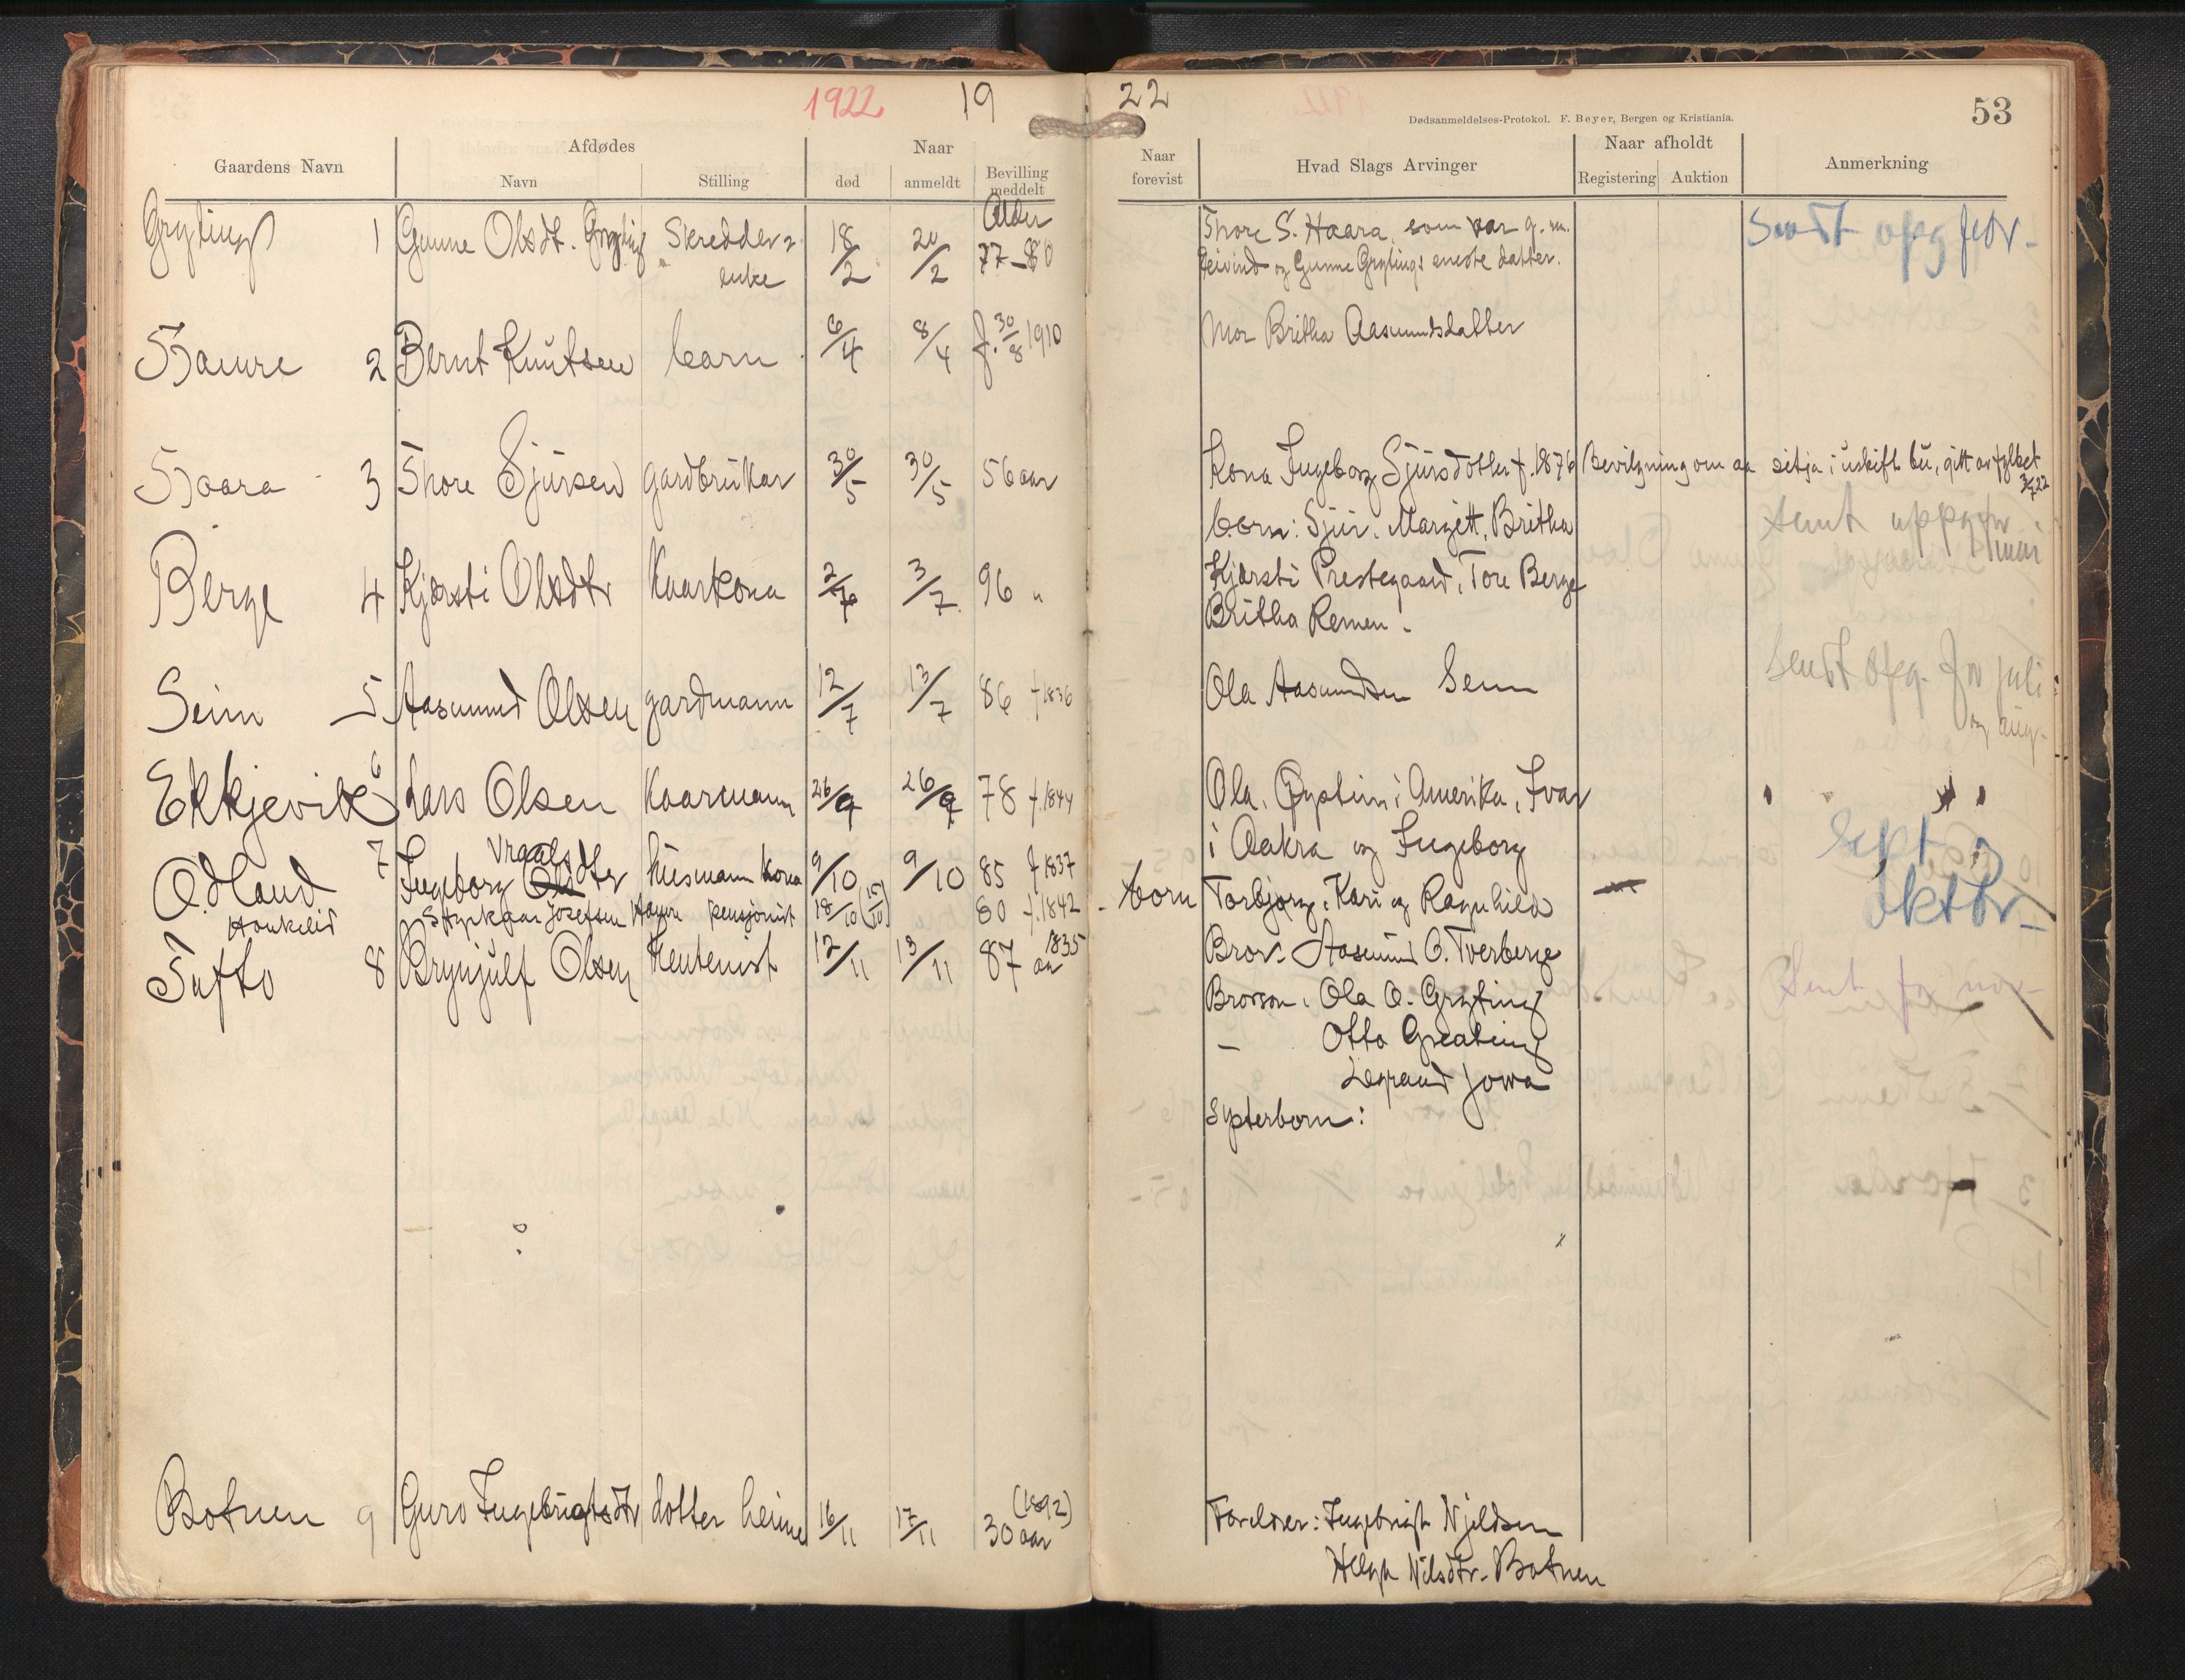 1922 19 22
Dødsanmeldelses-Protokol. F. Beyer, Bergen og Kristiania. 53
Gaardens Navn Afdødes Naar Naar forevist Hvad Slags Arvinger Naar afholdt Anmerkning
Navn Stilling død anmeldt Bevilling meddelt Registering Auktion
Alder
Gryting 1 Gunne Olsdt. Gryting Skredder enke 18/2 20/2 77-80 Thore S. Haara, som var g. m. Sendt opg febr.
Eivind og Gunne Grytings eneste datter.
Haure 2 Bernt Knutsen barn 6/4 8/4 f. 30/8 1910 Mor Britha Aasmundsdatter
Haara 3 Thore Sjursen gardbrukar 30/5 30/5 56 aar Kona Ingeborg Sjursdotter f. 1876 Bevilgning om aa sitja i uskift bu, gitt av fylket 3/7 22
born: Sjur, Margett, Britha Sent uppgjer i mai
Berge 4 Kjærsti Olsdtr Kaarkona 2/7 3/7 96 " Kjærsti Prestegaard, Tore Berge
Britha Remen.
Seim 5 Aasmund Olsen gardmann 12/7 13/7 86 f 1836 Ola Aasmundsen Seim Sendt opg. for juli
og aug.
Ekkjevik 6 Lars Olsen Kaarmann 26/9 26/9 78 f. 1844 Ola, Øystein i Amerika, Ivar
i Aakra og Ingeborg Sept. og
Odland 7 Ingeborg Vraalsdter husmann kona 9/10 9/10 85 f 1837 born Torbjørg, Kari og Ragnhild oktbr.
Honkelid Styrkaar Josefsen Haure pensjonist 18/10 (19/10) 80 f. 1842
Tufto 8 Brynjulf Olsen 12/11 13/11 87 aar 1835 Bror. Aasmund O. Tverberge
Brorson. Ola O. Gryting Sent for nov.
— Otto Greating
Legrand Jowa
Systerborn:
Botnen 9 Guro Ingebrigtsdtr dotter heime 16/11 17/11 (1892) 30 aar Foreldrer: Ingebrigt Njeldsen
Helga Nilsdtr. Botnen